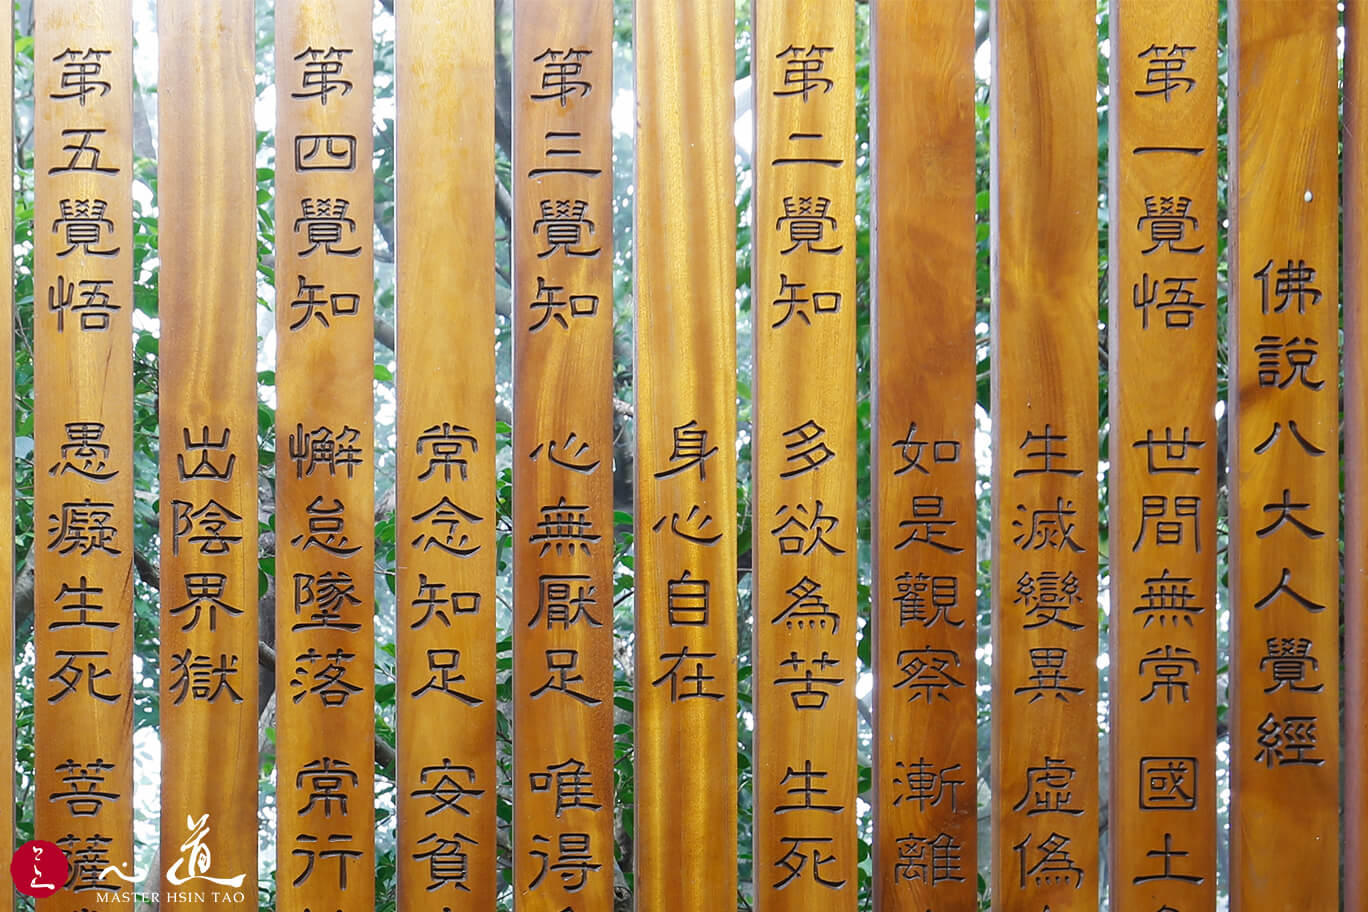 佛說八大人覺經
第一覺悟 世間無常 國土
生滅變異 虛偽
如是觀察 漸離
第二覺知 多欲為苦 生死
身心自在
第三覺知 心無厭足 唯得
常念知足 安貧
第四覺知 懈怠墜落 常行
出陰界獄
第五覺悟 愚癡生死 菩薩
心道
MASTER HSIN TAO